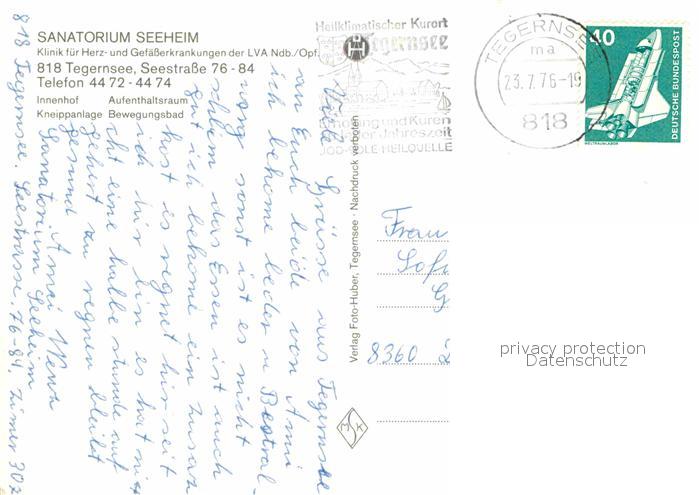 SANATORIUM SEEHEIM
Klinik für Herz- und Gefäßerkrankungen der LVA Ndb./Opf.
818 Tegernsee, Seestraße 76 - 84
Telefon 44 72 - 44 74
Innenhof Aufenthaltsraum
Kneippanlage Bewegungsbad
Heilklimatischer Kurort
Tegernsee
Erholung und Kuren
zu jeder Jahreszeit
JOD-QUELLE-HEILQUELLE
TEGERNSEE
ma
23.7.76-19
818
40
DEUTSCHE BUNDESPOST
WELTRAUMLABOR
Viele Grüsse aus Tegernsee
an Euch beide von Ami
ich bekome leider Bestral-
ung sonst ist es nicht
schlim das Essen ist auch
gut ich bekome ein zusaz
kost is regnet hir seit
ich hir bin es hat nie
cht eine halbe stunde auf
gehört zu regnen bleibt
gesund Amei Wenz
Sanatorium Seeheim
818 Tegernsee Seestrasse 76-84, Zimer 302
Verlag Foto-Huber, Tegernsee · Nachdruck verboten
Frau
Sofi
8360
MSK
privacy protection
Datenschutz